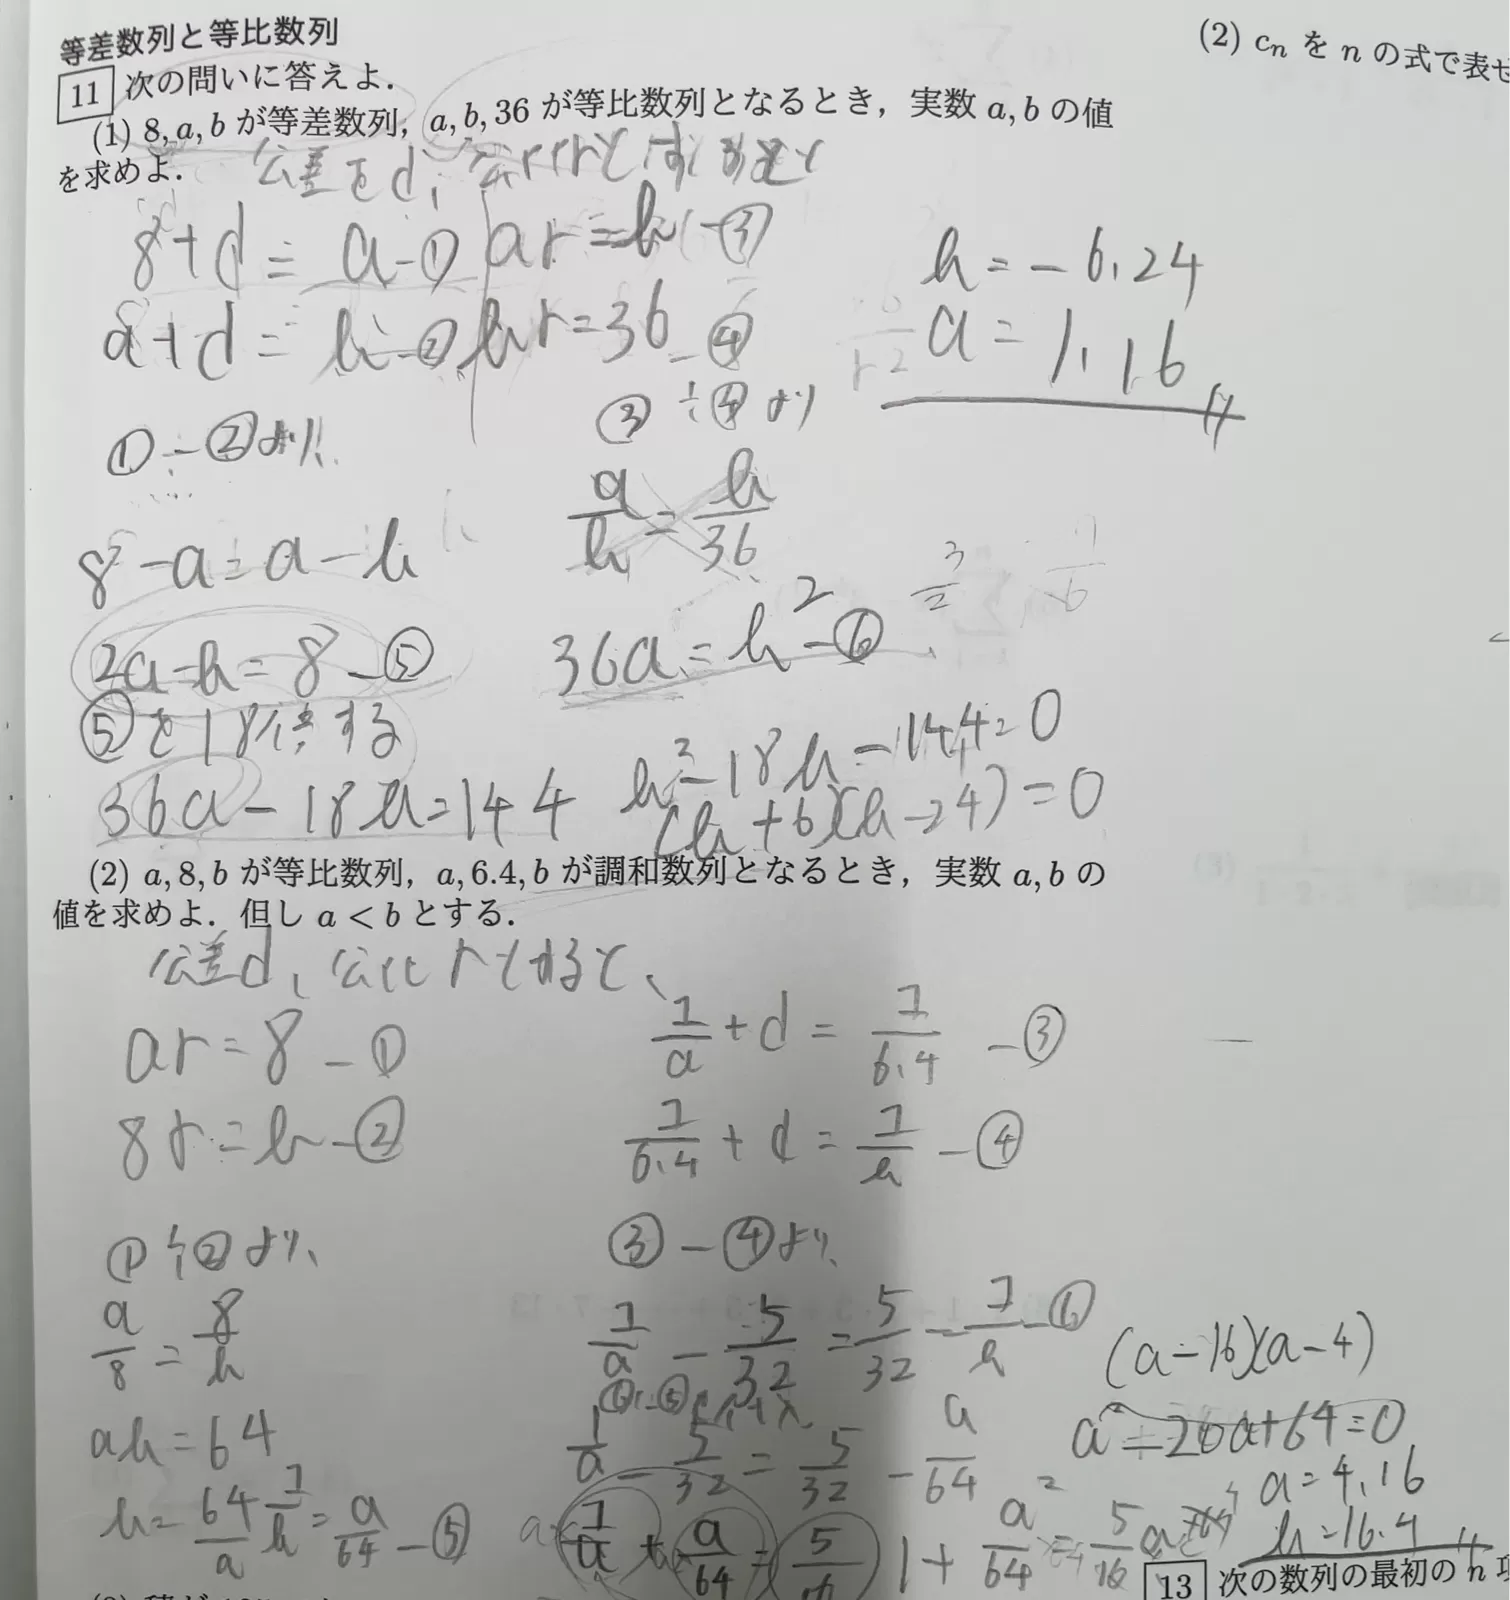 等差数列と等比数列
11 次の問いに答えよ.
(1) 8, a, b が等差数列, a, b, 36 が等比数列となるとき, 実数 a, b の値
を求めよ.
公差をd, 公比rとすると
8+d=a-①
ar=b-③
a+d=b-②
br=36-④
b=-6,24
a=1,16
①-②より
③÷④より
8-a=a-b
a/b=b/36
2a-b=8-⑤
36a=b²-⑥
3/2
⑤を18倍する
36a-18b=144
b²-18b-144=0
(b+6)(b-24)=0
(2) a, 8, b が等比数列, a, 6.4, b が調和数列となるとき, 実数 a, b の
値を求めよ. 但し a < b とする.
公差d, 公比rとすると、
ar=8-①
1/a+d=1/6.4-③
8r=b-②
1/6.4+d=1/b-④
①÷②より、
③-④より、
a/8=8/b
1/a-5/32=5/32-1/b-⑥
ab=64
1/a-5/32=5/32-a/64
b=64/a 1/b=a/64-⑤
1/a+a/64=5/16
1+a²/64=5/16a
(a-16)(a-4)
a²-20a+64=0
a=4,16
b=16,4
(2) cn を n の式で表せ
13 次の数列の最初の n 項